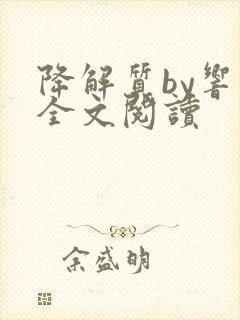 降解質by響
全文閱讀
余盛明